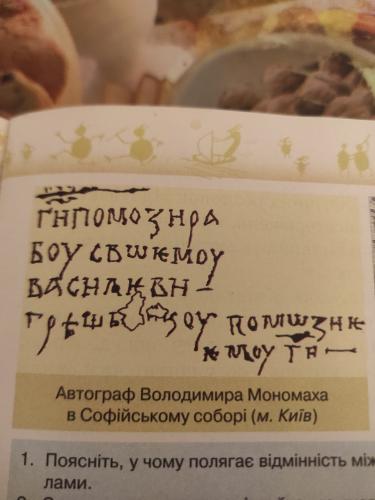 ГН҃ПОМОЗНРА
БОУ СВШЮМОУ
ВАСНЛКВН–
ГРѢШЬ ЗОУ ПОМѠЗНЮ
ЮМОУ ГН–
Автограф Володимира Мономаха
в Софійському соборі (м. Київ)
1. Поясніть, у чому полягає відмінність між
лами.